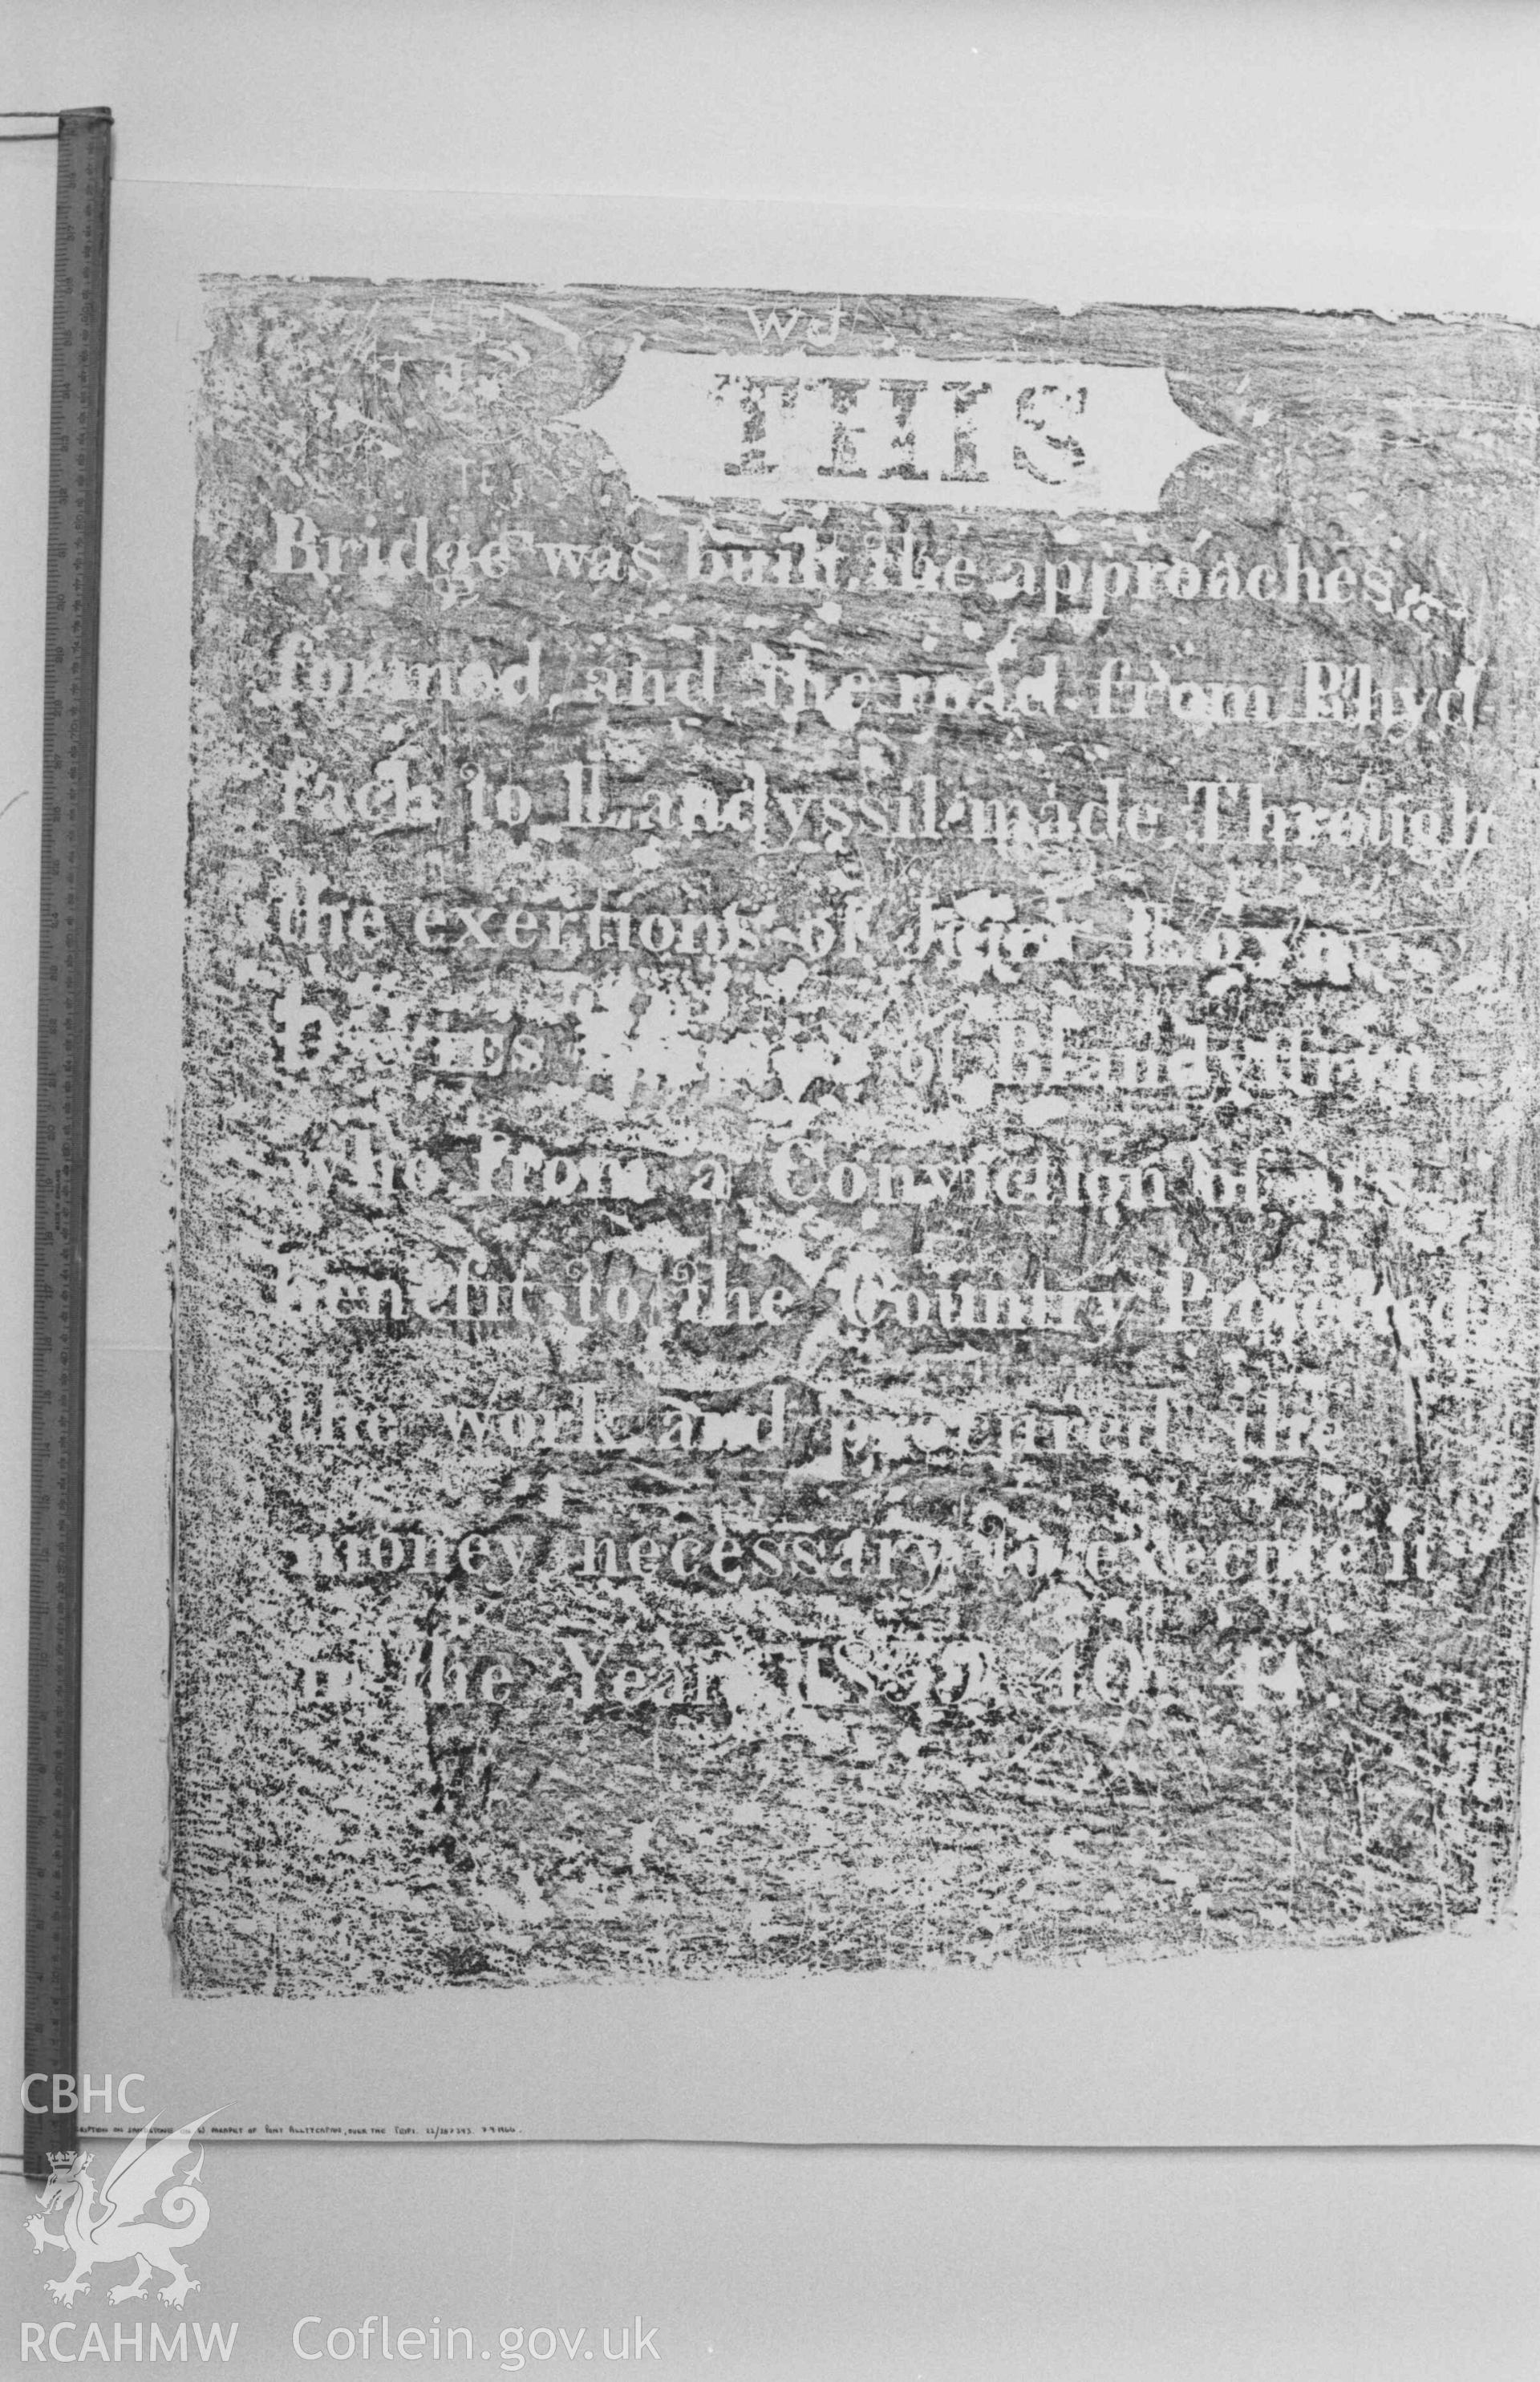 WJ
THIS
Bridge was built, the approaches
formed and the road from Rhyd
fach to Llandyssil made Through
the exertions of
of Blandyffryn
who from a Conviction of its
benefit to the Country Projected
the work and procured the
money necessary to execute it
in the Year 1839. 40. 41.
CBHC
RCAHMW Coflein.gov.uk